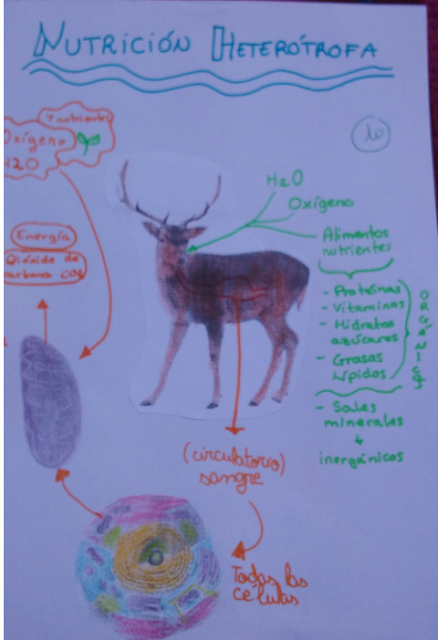 NUTRICIÓN HETERÓTROFA
Y nutrientes
Oxígeno
H2O
10
H2O
Oxígeno
Alimentos
nutrientes
Energía
Dióxido de
carbono CO2
- Proteínas
- Vitaminas
- Hidratos
azúcares
- Grasas
Lípidos
ORGÁNICOS
- Sales
minerales
inorgánicos
(circulatorio)
sangre
Todas las
células